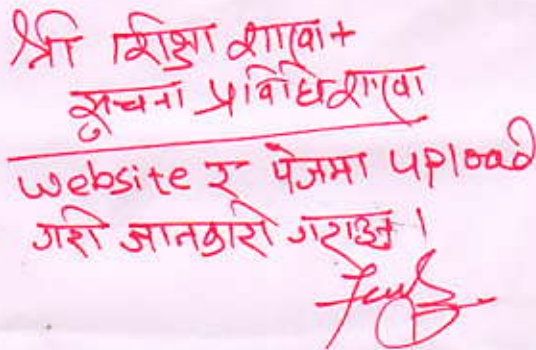 श्री शिक्षा शाखा+
सूचना प्रविधि शाखा
website र पेजमा upload
गरी जानकारी गराउनु।